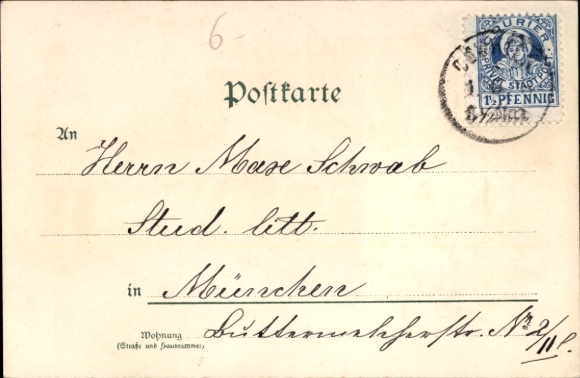 6-
COURIER
PRIVAT STADTPOST
1½ PFENNIG
Postkarte
An
Herrn Max Schwab
Stud. litt.
in München
Wohnung
(Straße und Hausnummer)
Buttermelcherstr. No 2/II l.